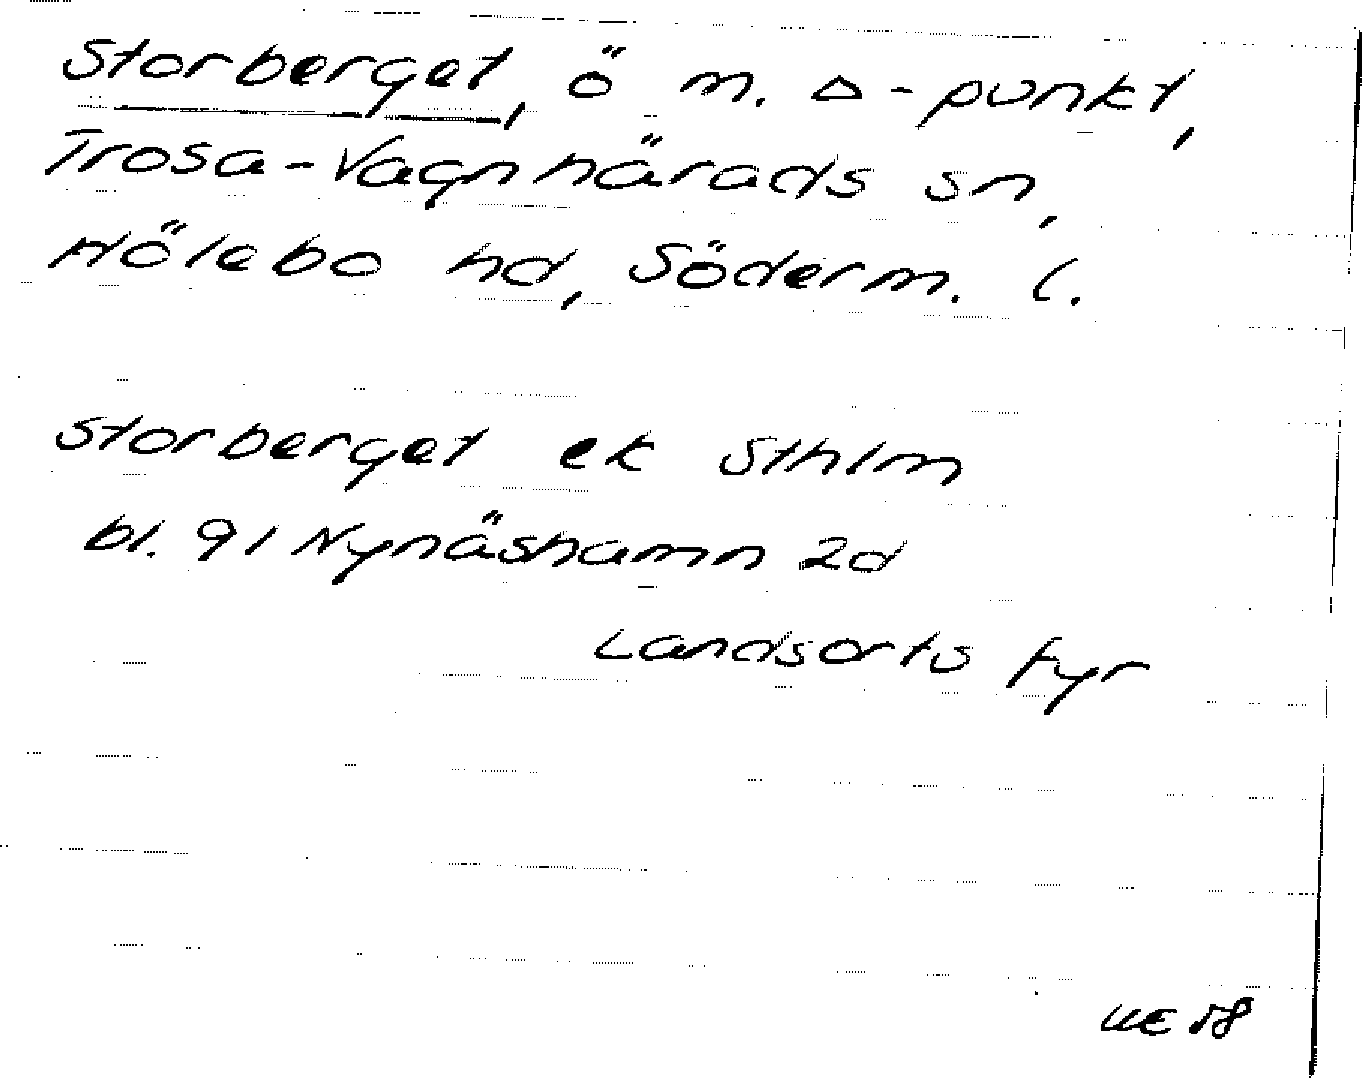 Storberget, ö m. △-punkt,
Trosa-Vagnhärads sn,
Hölebo hd, Söderm. l.
Storberget ek Sthlm
bl. 91 Nynäshamn 2d
Landsorts fyr